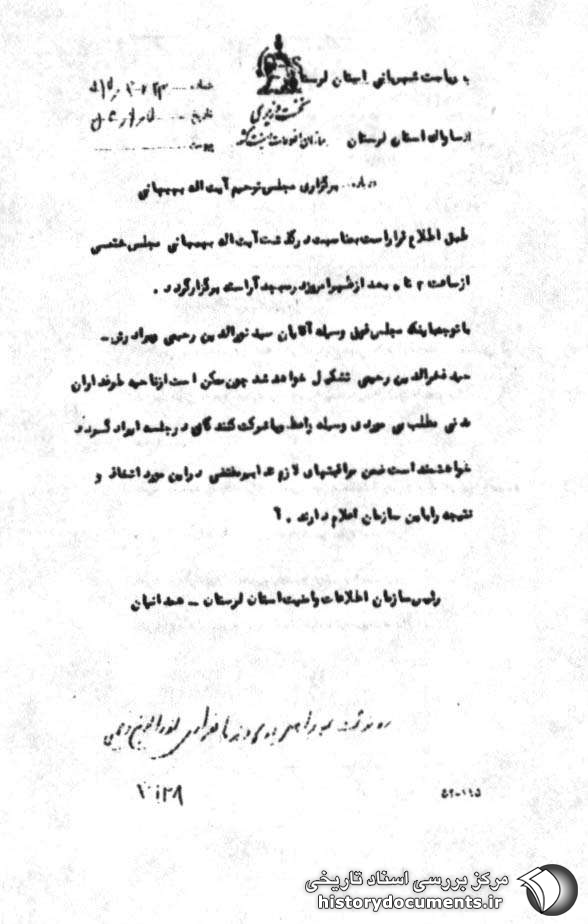 به ریاست شهربانی استان لرستان
شماره
نخست وزیری
تاریخ
از ساواک استان لرستان
سازمان اطلاعات و امنیت کشور
پیوست
درباره برگزاری مجلس ترحیم آیت اله بهبهانی
طبق اطلاع قرار است بمناسبت درگذشت آیت اله بهبهانی مجلس ختمی
از ساعت ۲ تا ۵ بعد از ظهر امروز در مسجد آراسته برگزار گردد .
با توجه باینکه مجلس فوق وسیله آقایان سید نورالدین رحیمی و برادرش -
سید فخرالدین رحیمی تشکیل خواهد شد چون ممکن است از ناحیه طرفداران
مطلب وسیله واعظ و یا شرکت کنندگان در جلسه ایراد گردد
خواهشمند است ضمن مراقبتهای لازم تدابیر مقتضی در این مورد اتخاذ و
نتیجه را باین سازمان اعلام دارند .
رئیس سازمان اطلاعات و امنیت استان لرستان - همدانیان
نورالدین رحیمی
۵۲-۱۱۵
مرکز بررسی اسناد تاریخی
historydocuments.ir